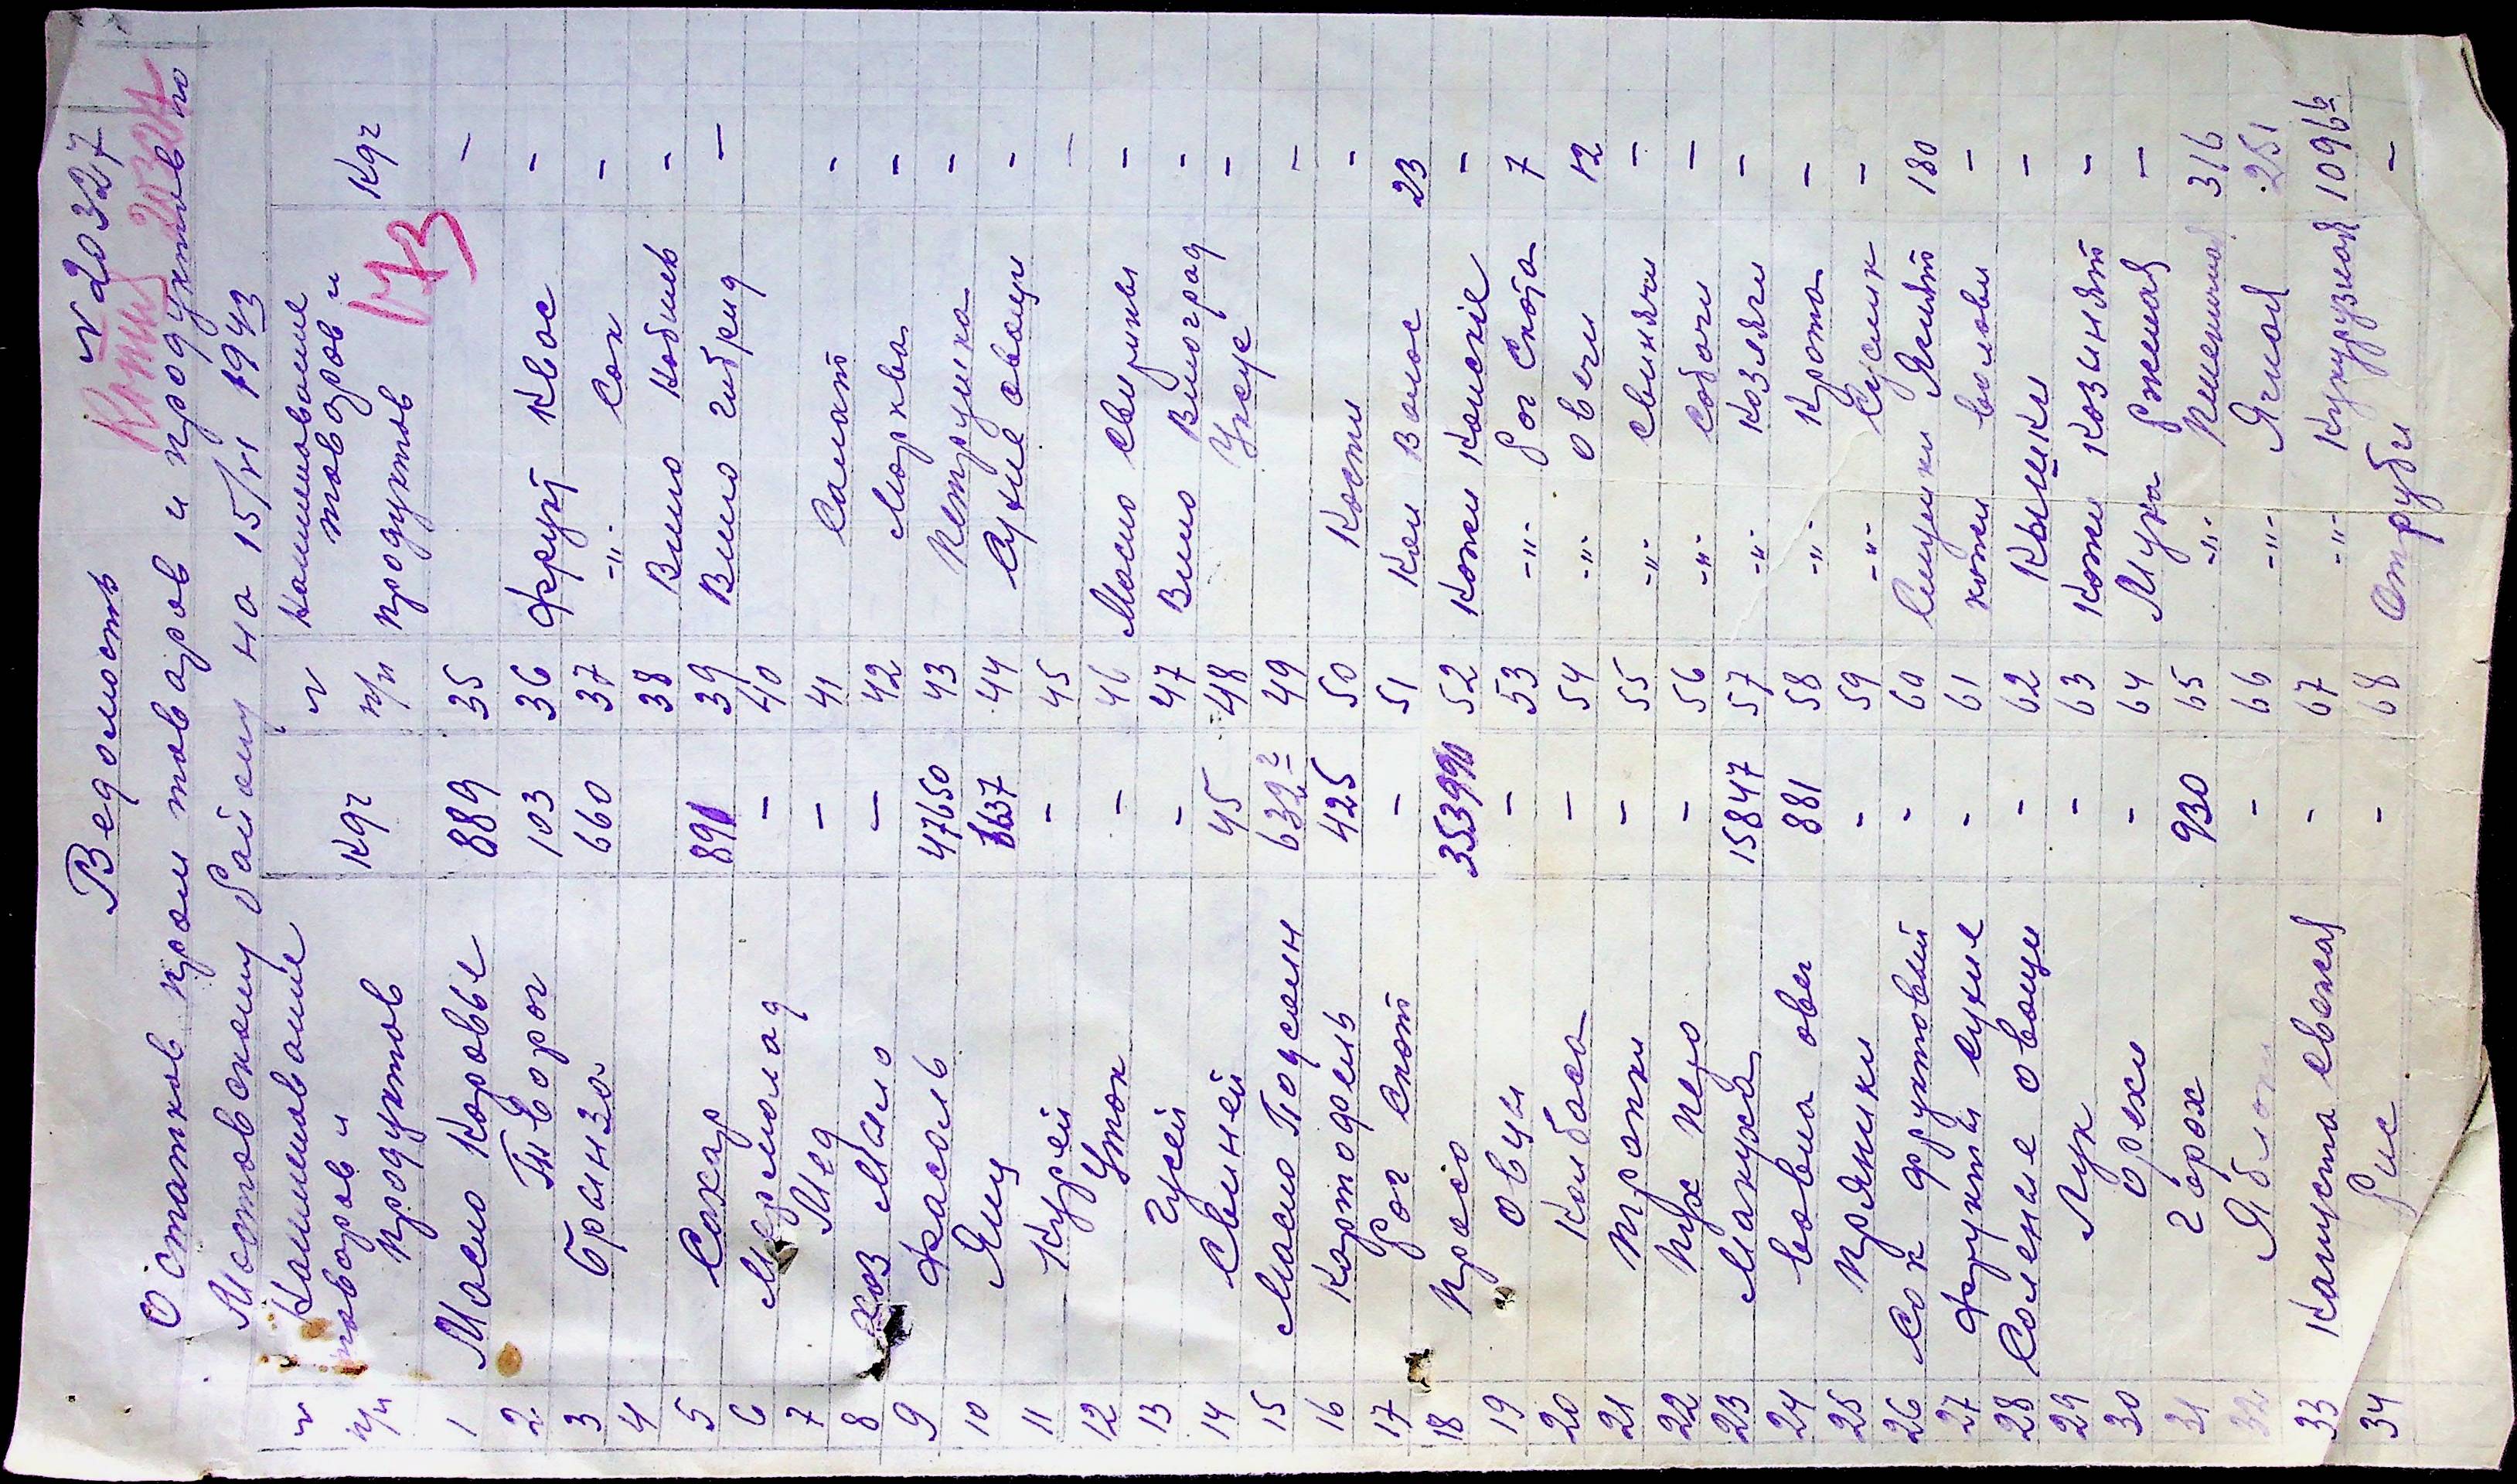 Ведомость № 20327
Остатков пром товаров и продуктов по
Мостовскому Району на 15/VI 1943
173
№ п/п Наименование товаров и продуктов Кдг № п/п Наименование товаров и продуктов Кдг
1 Масло Коровье 889 35 -
2 Творог 103 36 Фрукт Квас -
3 Брынза 660 37 -"- Сок -
4 38 Вино Кобыль -
5 Сахар 891 39 Вино Гибрид -
6 Мармолад - 40
7 Мед - 41 Салат -
8 Хоз Мыло - 42 Морква -
9 Фасоль 47650 43 Петрушка -
10 Яиц 1637 44 Сухие овощи -
11 Курей - 45 -
12 Уток - 46 Масло Сливки -
13 Гусей - 47 Вино Виноград -
14 Свиней 45 48 Уксус -
15 Масло Подсолн 632 49 -
16 Картофель 425 50 Кости -
17 Рог Скот - 51 Кон Волос 23
18 Просо 353990 52 Кожи Конскіе -
19 Овцы - 53 -"- Рог Скота 7
20 Колбаса - 54 -"- Овечи 12
21 - 55 -"- Свинячи -
22 Пух Перо - 56 -"- Собачи -
23 Макуха 15847 57 -"- Козлячи -
24 овец 881 58 -"- Крота -
25 Пряники - 59 -"- Суслик -
26 Сок фруктовый - 60 Смушки Ягнят 180
27 Фрукты сухие - 61 кожи воловы -
28 Соленые овощи - 62 Кышки -
29 Лук - 63 Кожи Козинят -
30 Орехи - 64 Мука Ржаная -
31 Горох 930 65 -"- Пшеничная 316
32 Яблоки - 66 -"- Ячная 251
33 Капуста свежая - 67 -"- Кукурузная 1096
34 Рис - 68 Отруби -